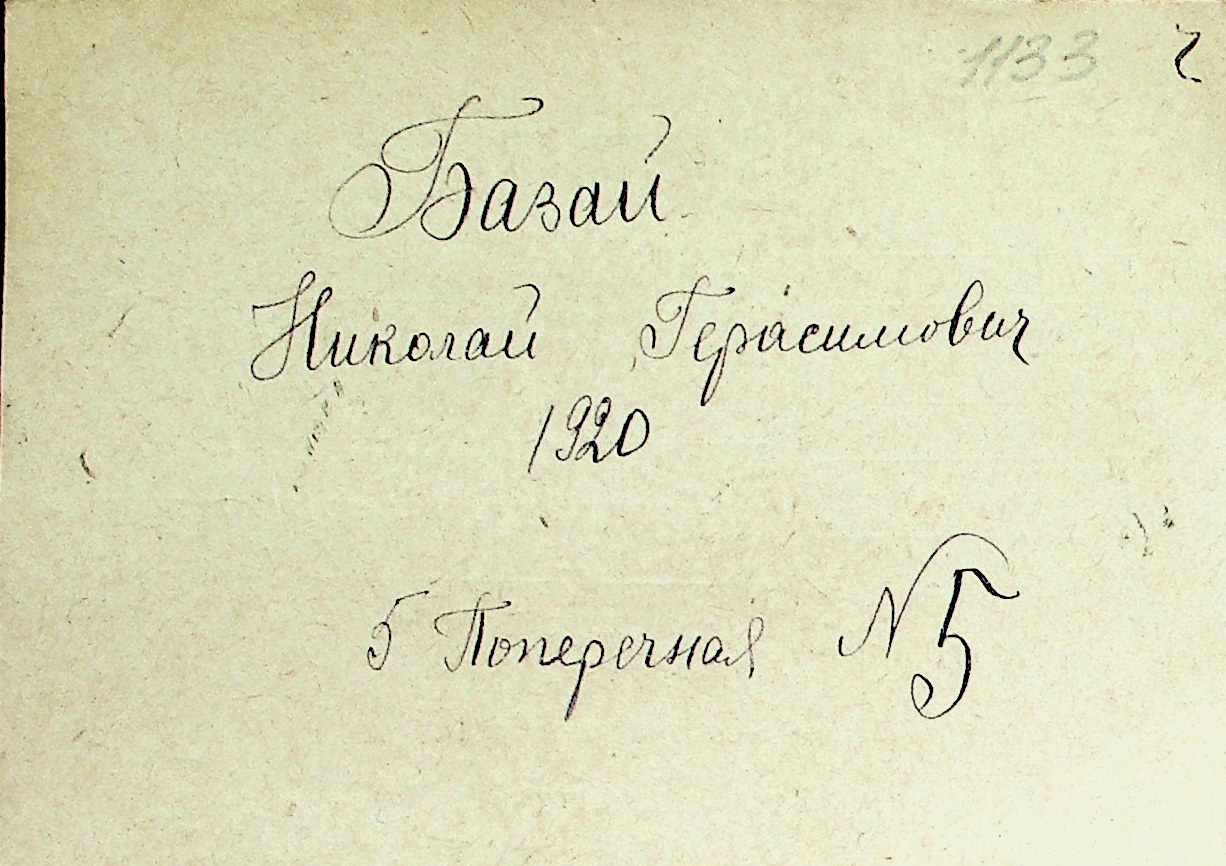 1133
Базай
Николай Герасимович
1920
5 Поперечная N 5